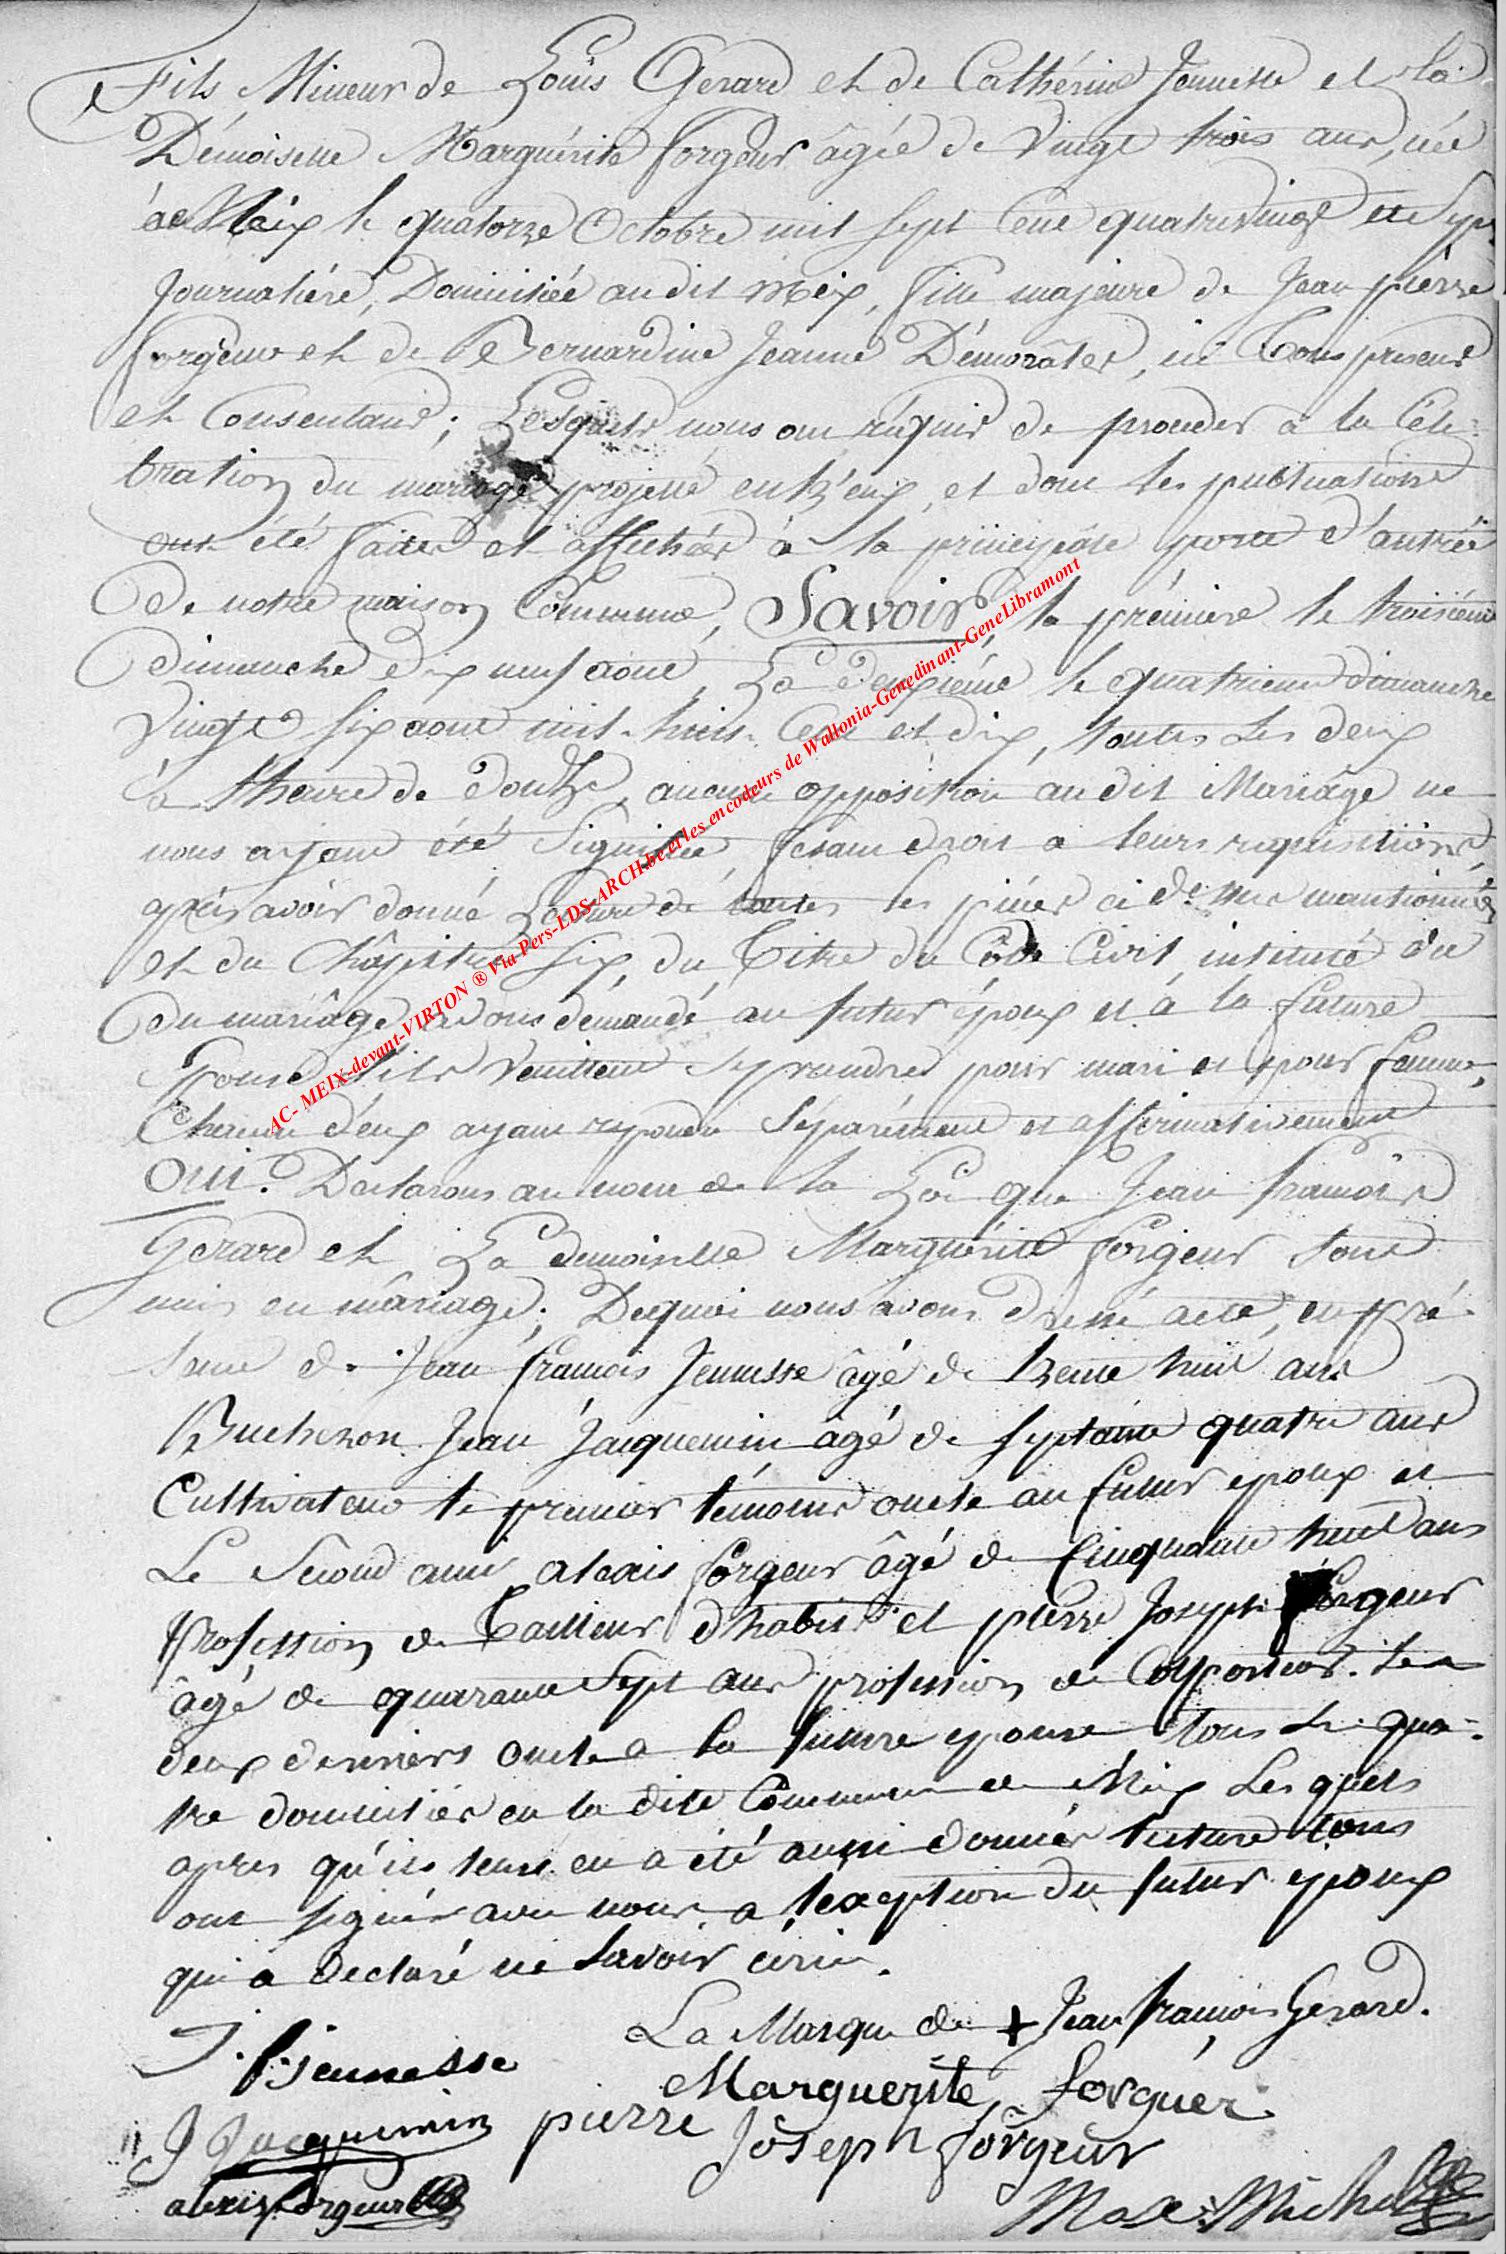 Fils Mineur de Louis Gerard et de Cathérine Jeunesse et la
Démoiselle Marguérite forgeur âgée de Vingt trois ans, née
à Meix le quatorze Octobre mil sept Cent quatre vingt et Sept
Journaliére, Domiciliée audit Meix, fille majeure de Jean piérre
forgeur et de Bernardine Jeanne Démorâtes, ici tous present
et Consentant; Lesquels nous ont réquis de proceder a la Célé-
bration du mariage projetté entr'eux, et dont les publications
ont été faites et affichées à la principâle porte d'antrée
De notre maison Commune, Savoir, la prémiere le troisiéme
dimanche dix neuf aout, La deuxiéme le quatrieme dimanche
Vingt Six aout mil huit Cent et dix, toutes Les deux
à l'heure de douze, aucune opposition audit Mariage ne
nous ayant été Signifiée, fesant droit a leurs requisitions,
aprés avoir donné Lecture de toutes les piéces ci dessus mantionnées
et du Châpitre Six, du Titre du Côde Civil intitulé du
Du mariâge avons démandé au futur époux et à la future
Epouse s'ils veuillent se prandre pour mari et pour famme,
Chacun d'eux ayant repondu Séparément et affirmativement
oui. Declarons au nom de la Loi que Jean françois
Gerard et La demoiselle Marguérite forgeur sont
unis en mâriage; Dequoi nous avons dressé acte, en pré-
sence de Jean françois Jeunesse âgé de trente huit ans
Bucheron Jean Jacquemin âgé de septante quatre ans
Cultivateur le premier témoins oncle au futur epoux et
Le Sécond ami alexis forgeur âgé de Cinquante huit ans
Profession de Tailleur d'habits et pierre Joseph forgeur
âgé de quarante Sept ans profession de Colporteur. Les
deux derniers oncle a la future epouse tous Les qua-
tre domiciliés en la dite Commune de Meix Lesquels
apres qu'ils leurs en a été aussi donnée lecture tous
ont signés avec nous a l'exeption du futur epoux
qui a declaré ne Savoir écrire.
La Marque de + Jean françois Gerard.
J. f. jeunesse
Marguerite forguer
J Jacquemin pierre Joseph forgeur
alexis forgeur
Max: Michel
AC- MEIX-devant-VIRTON ® Via Pers-LDS-ARCH.be et les encodeurs de Wallonia-Genedinant-GeneLibramont